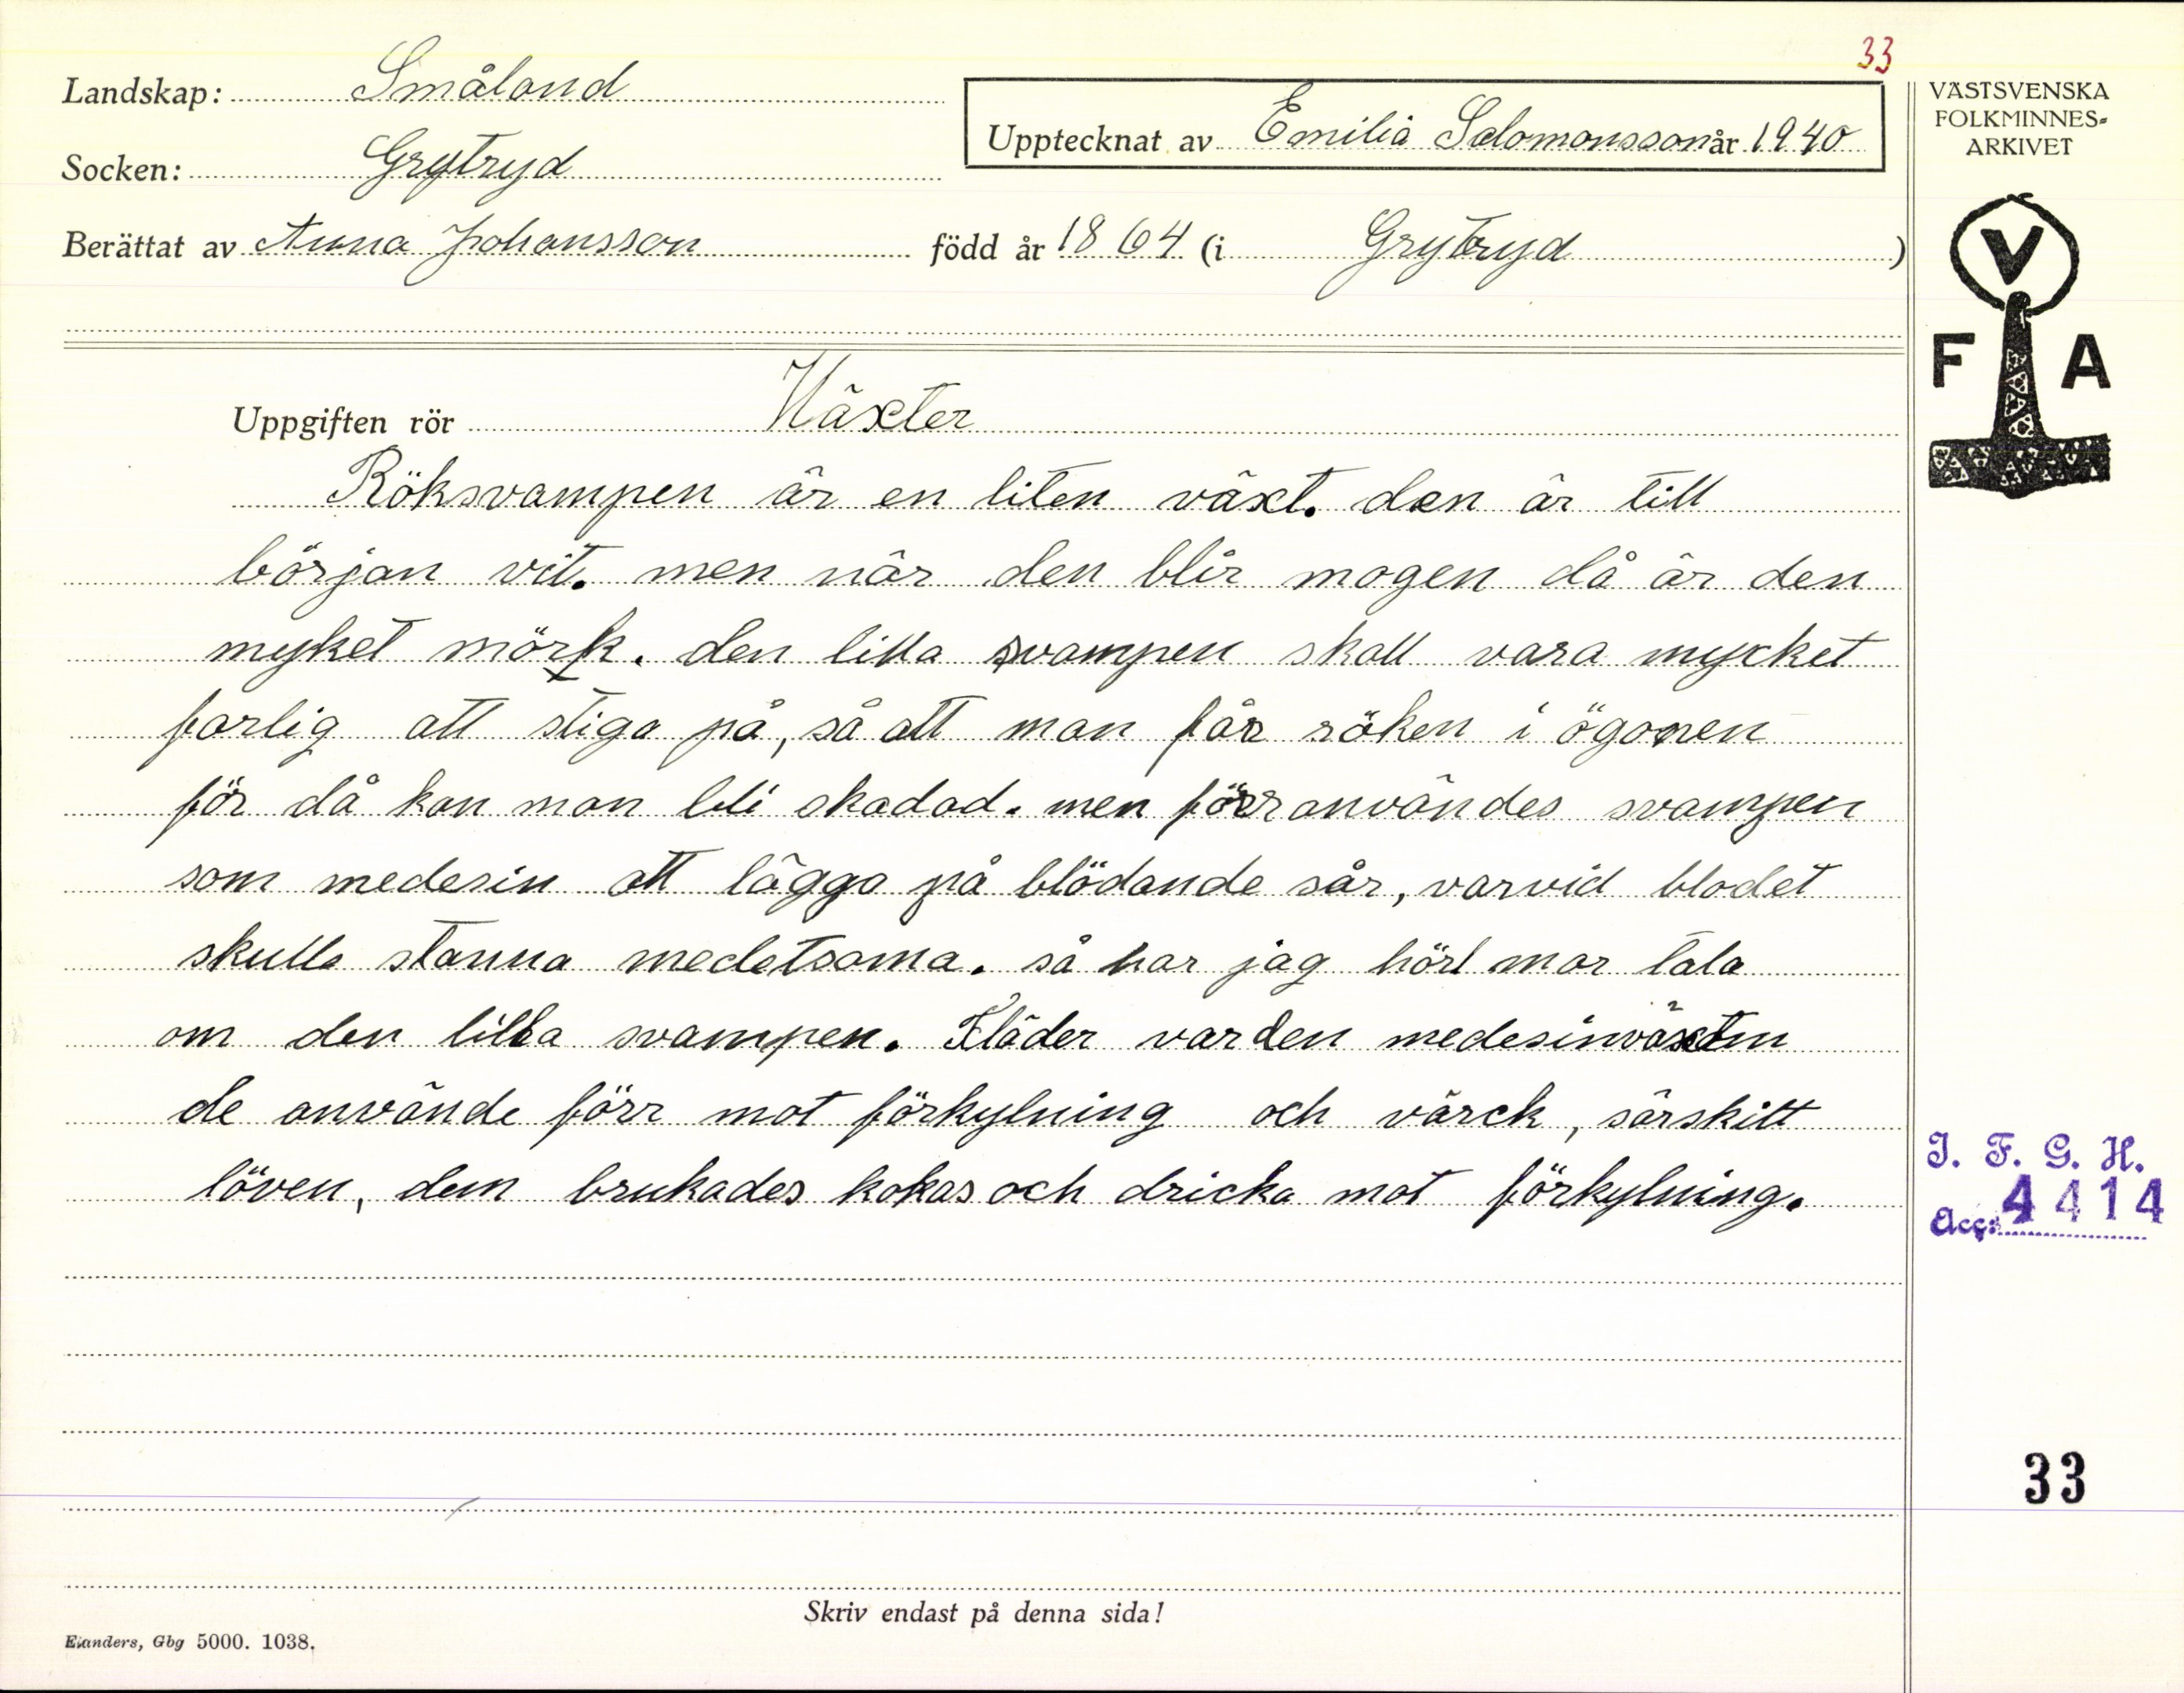 33
Landskap: Småland
Upptecknat av Emilia Salomonsson år 1940
Socken: Grytryd
Berättat av Anna Johansson född år 1864 (i Grytryd)
Uppgiften rör Växter
Röksvampen är en liten växt. den är till
början vit. men när den blir mogen då är den
myket mörk. den lilla svampen skall vara mycket
farlig att stiga på, så att man får röken i ögonen
för då kan man bli skadad. men förr användes svampen
som medesin att lägga på blödande sår, varvid blodet
skulle stanna medetsama. så har jag hört mor tala
om den lilla svampen. Fläder var den medesinväxten
de använde förr mot förkylning och värck, särskilt
löven, dem brukades kokas och dricka mot förkylning.
Skriv endast på denna sida!
Elanders, Gbg 5000. 1038.
VÄSTSVENSKA
FOLKMINNES-
ARKIVET
V
F A
I. F. G. H.
Acc: 4414
33